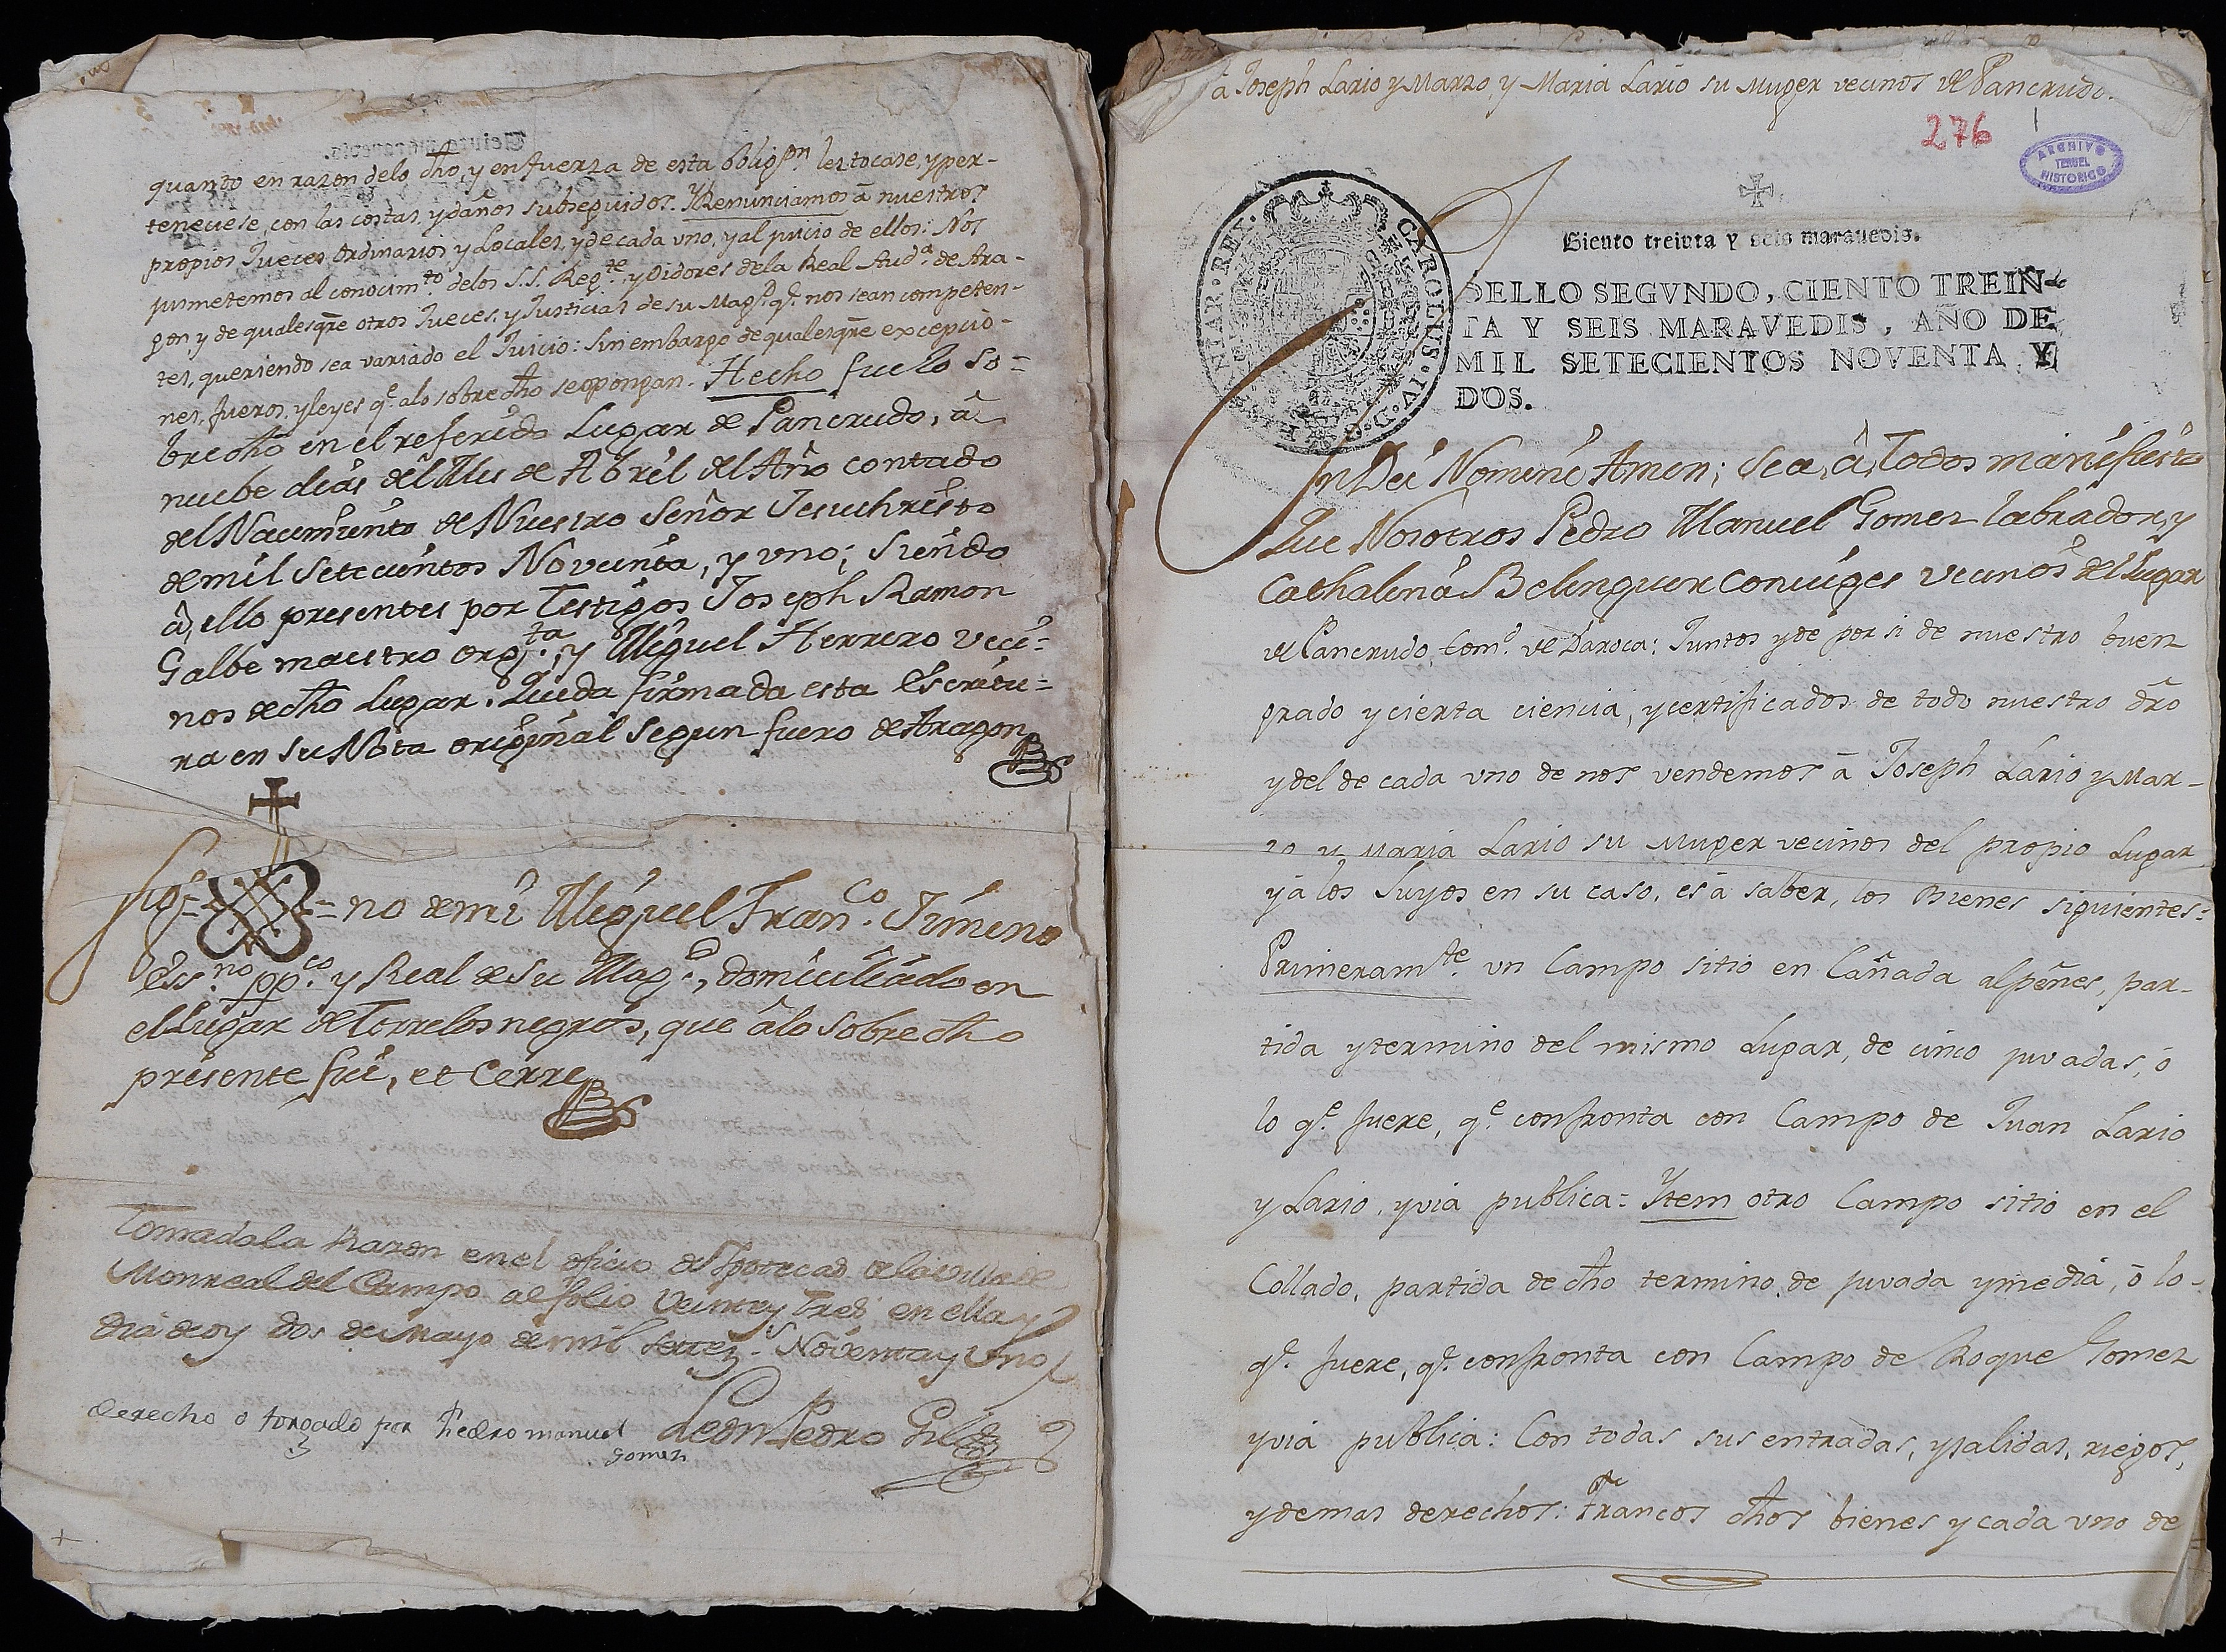 quanto en razon delo dho, y en fuerza de esta obligon. les tocase, y per-
teneciese, con las costas, y daños subseguidos. Y Renunciamos â nuestros
propios Jueces Ordinarios y Locales, y de cada uno, y al juicio de ellos: Nos
jusmetemos al conocimto. delos S.S. Regte. y Oidores dela Real Auda. de Ara-
gon y de qualesqre otros Jueces, y Justicias de su Magd. qe. nos sean competen-
tes, queriendo sea variado el Juicio: Sin embargo de qualesqre excepcio-
nes, fueros, y leyes qe. alo sobredho se opongan. Hecho fue lo so=
bredho en el referido Lugar de Pancrudo, â
nuebe dias del Mes de Abril del Año contado
del Nacimiento de Nuestro Señor Jesuchristo
de mil setecientos Noventa, y uno; siendo
â ello presentes por Testigos Joseph Ramon
Galbe maestro orgta., y Miguel Herrero veci=
nos de dho Lugar. Queda firmada esta Escritu=
ra en su Nota original segun fuero de Aragon
Sig= =no de mi Miguel Franco. Jimeno
Essno. ppco. y Real de su Magd., domiciliado en
el Lugar de Torrelosnegros, que â lo sobredho
presente fui, et Cerre
Tomada la Razon en el oficio de Ypotecas de la villa de
Monreal del Campo al folio veinte y tres en ella y
dia de oy dos de Mayo de mil setezs. Noventa y uno
Leon Pedro Gil
derecho o torgado por Pedro manuel
Gomez
â Joseph Lario y Marzo, y Maria Lario su Muger vecinos de Pancrudo.
276
1
ARCHIVO
TERUEL
HISTORICO
CAROLUS·IV·D·G· HISPANIAR·REX·
Ciento treinta y seis maravedis.
SELLO SEGVNDO, CIENTO TREIN-
TA Y SEIS MARAVEDIS, AÑO DE
MIL SETECIENTOS NOVENTA Y
DOS.
In Dei Nomine Amen; Sea, â Todos manifiesto
Que Nosotros Pedro Manuel Gomez labrador, y
Cathalina Belenguer Coniuges vecinos del Lugar
de Pancrudo, Comd. de Daroca: Juntos y de por si de nuestro buen
grado y cierta ciencia, y certificados de todo nuestro dro
y del de cada uno de nos vendemos â Joseph Lario y Mar-
zo y Maria Lario su Muger vecinos del propio Lugar
y â los suyos en su caso, es â saber, los Bienes siguientes:
Primeramte. un Campo sitio en Cañada alpeñes, par-
tida y termino del mismo Lugar, de cinco juvadas, ô
lo qe. fuere, qe. confronta con Campo de Juan Lario
y Lario, y via publica= Ytem otro Campo sitio en el
Collado, partida de dho termino, de juvada y media, ô lo
qe. fuere, qe. confronta con Campo de Roque Gomez
y via publica: Con todas sus entradas, y salidas, riegos,
y demas derechos: Francos dhos bienes y cada uno de